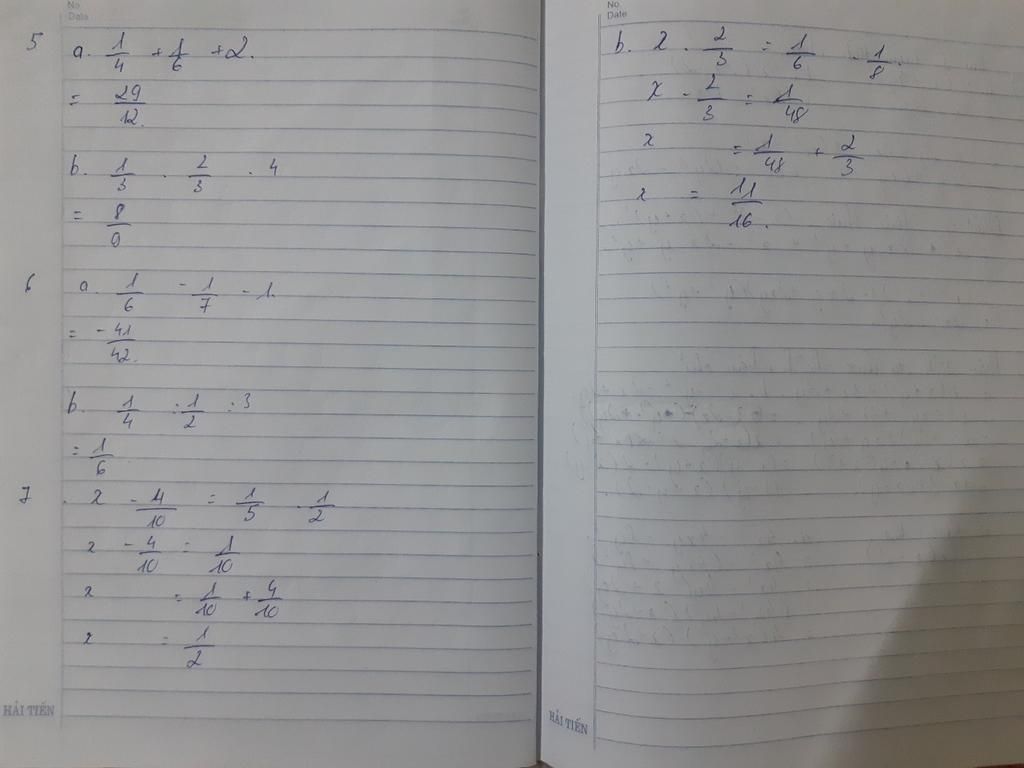 No.
Date
5 a. 1/4 + 1/6 + 2.
= 29/12.
b. 1/3 . 2/3 . 4
= 8/9
6 a. 1/6 - 1/7 - 1.
= -41/42.
b. 1/4 : 1/2 : 3
= 1/6
7 . x - 4/10 = 1/5 . 1/2
x - 4/10 = 1/10
x = 1/10 + 4/10
x = 1/2
HẢI TIẾN
No.
Date
b. x . 2/3 = 1/6 . 1/8.
x - 2/3 = 1/48
x = 1/48 + 2/3
x = 11/16.
HẢI TIẾN